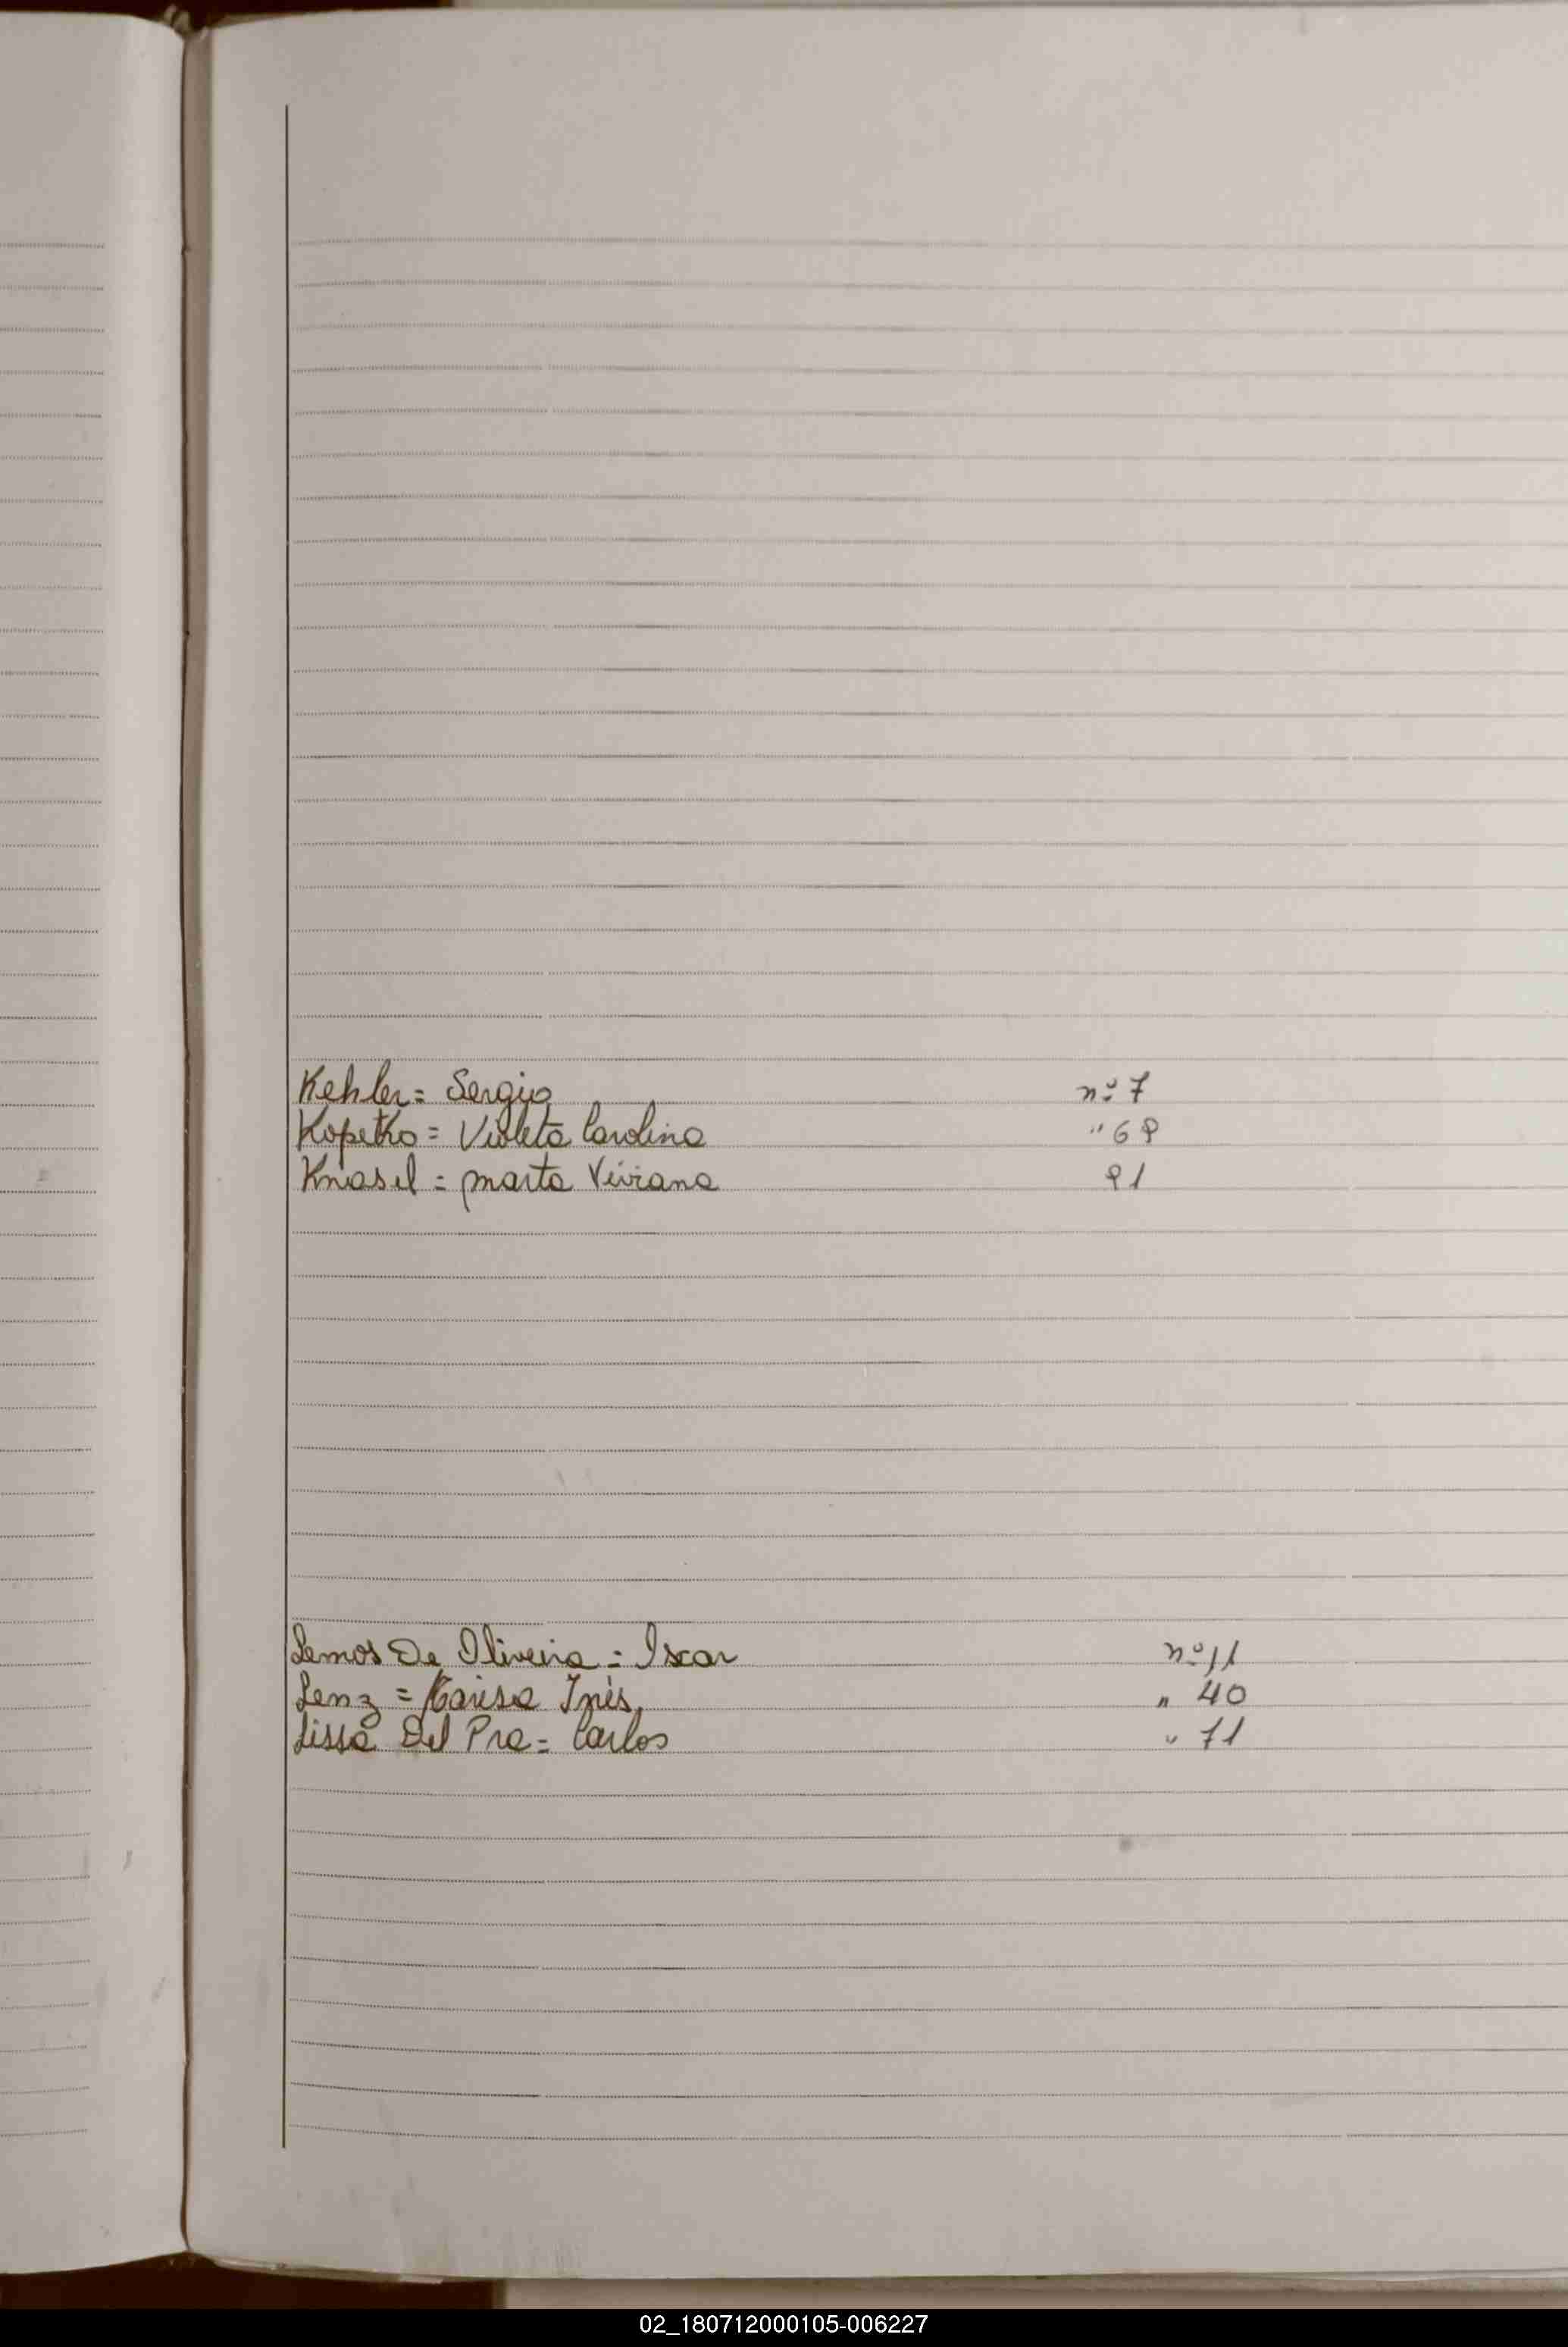 Kehler = Sergio nº 7
Kopetko = Violeta Carolina " 68
Knasel = Marta Viviana 81
Lemos De Oliveira = Iscar nº 11
Lenz = Inés " 40
Lissa Del Pra = Carlos " 71
02_180712000105-006227